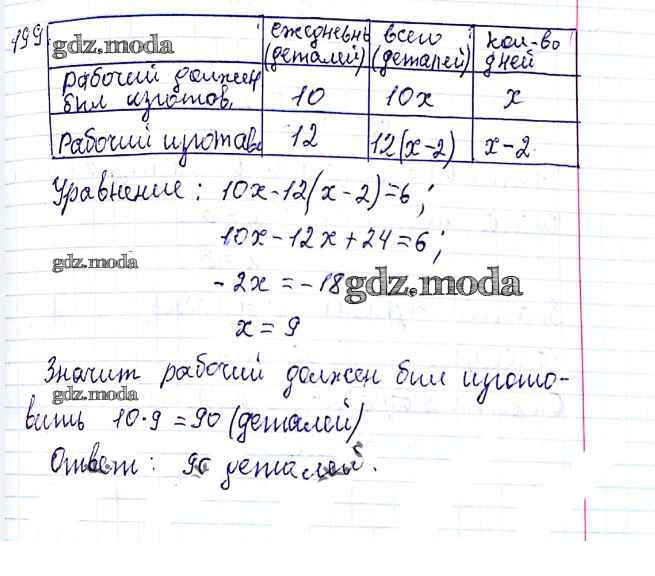 199
gdz.moda
ежедневн. (деталей) | всего (деталей) | кол-во дней
рабочий должен был изготов. | 10 | 10x | x
Рабочий изготав. | 12 | 12(x-2) | x-2
Уравнение: 10x-12(x-2)=6;
10x-12x+24=6;
gdz.moda
-2x=-18
gdz.moda
x=9
Значит рабочий должен был изгото-
gdz.moda
вить 10·9=90 (деталей)
Ответ: 90 деталей.